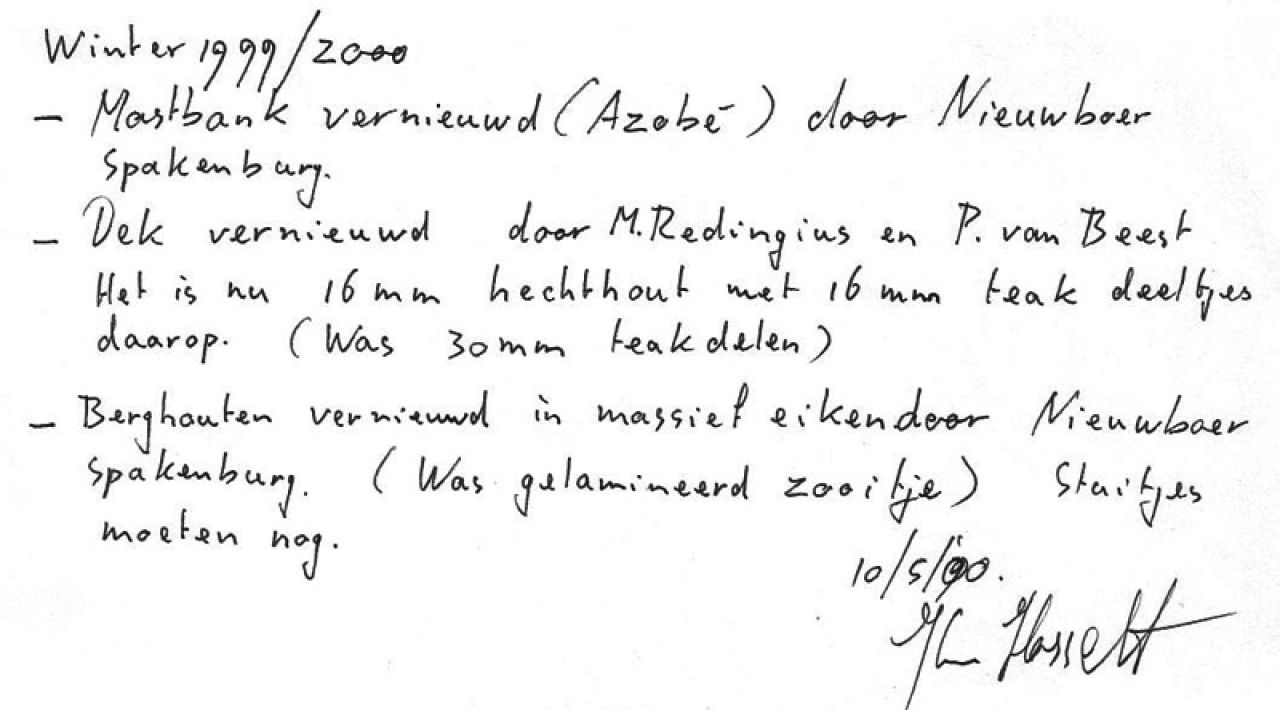 Winter 1999/2000
- Mastbank vernieuwd (Azobé) door Nieuwboer
Spakenburg.
- Dek vernieuwd door M. Redingius en P. van Beest
Het is nu 16 mm hechthout met 16 mm teak deeltjes
daarop. (Was 30mm teakdelen)
- Berghouten vernieuwd in massief eiken door Nieuwboer
Spakenburg. (Was gelamineerd zooitje) Stuitjes
moeten nog.
10/5/
Hasselt